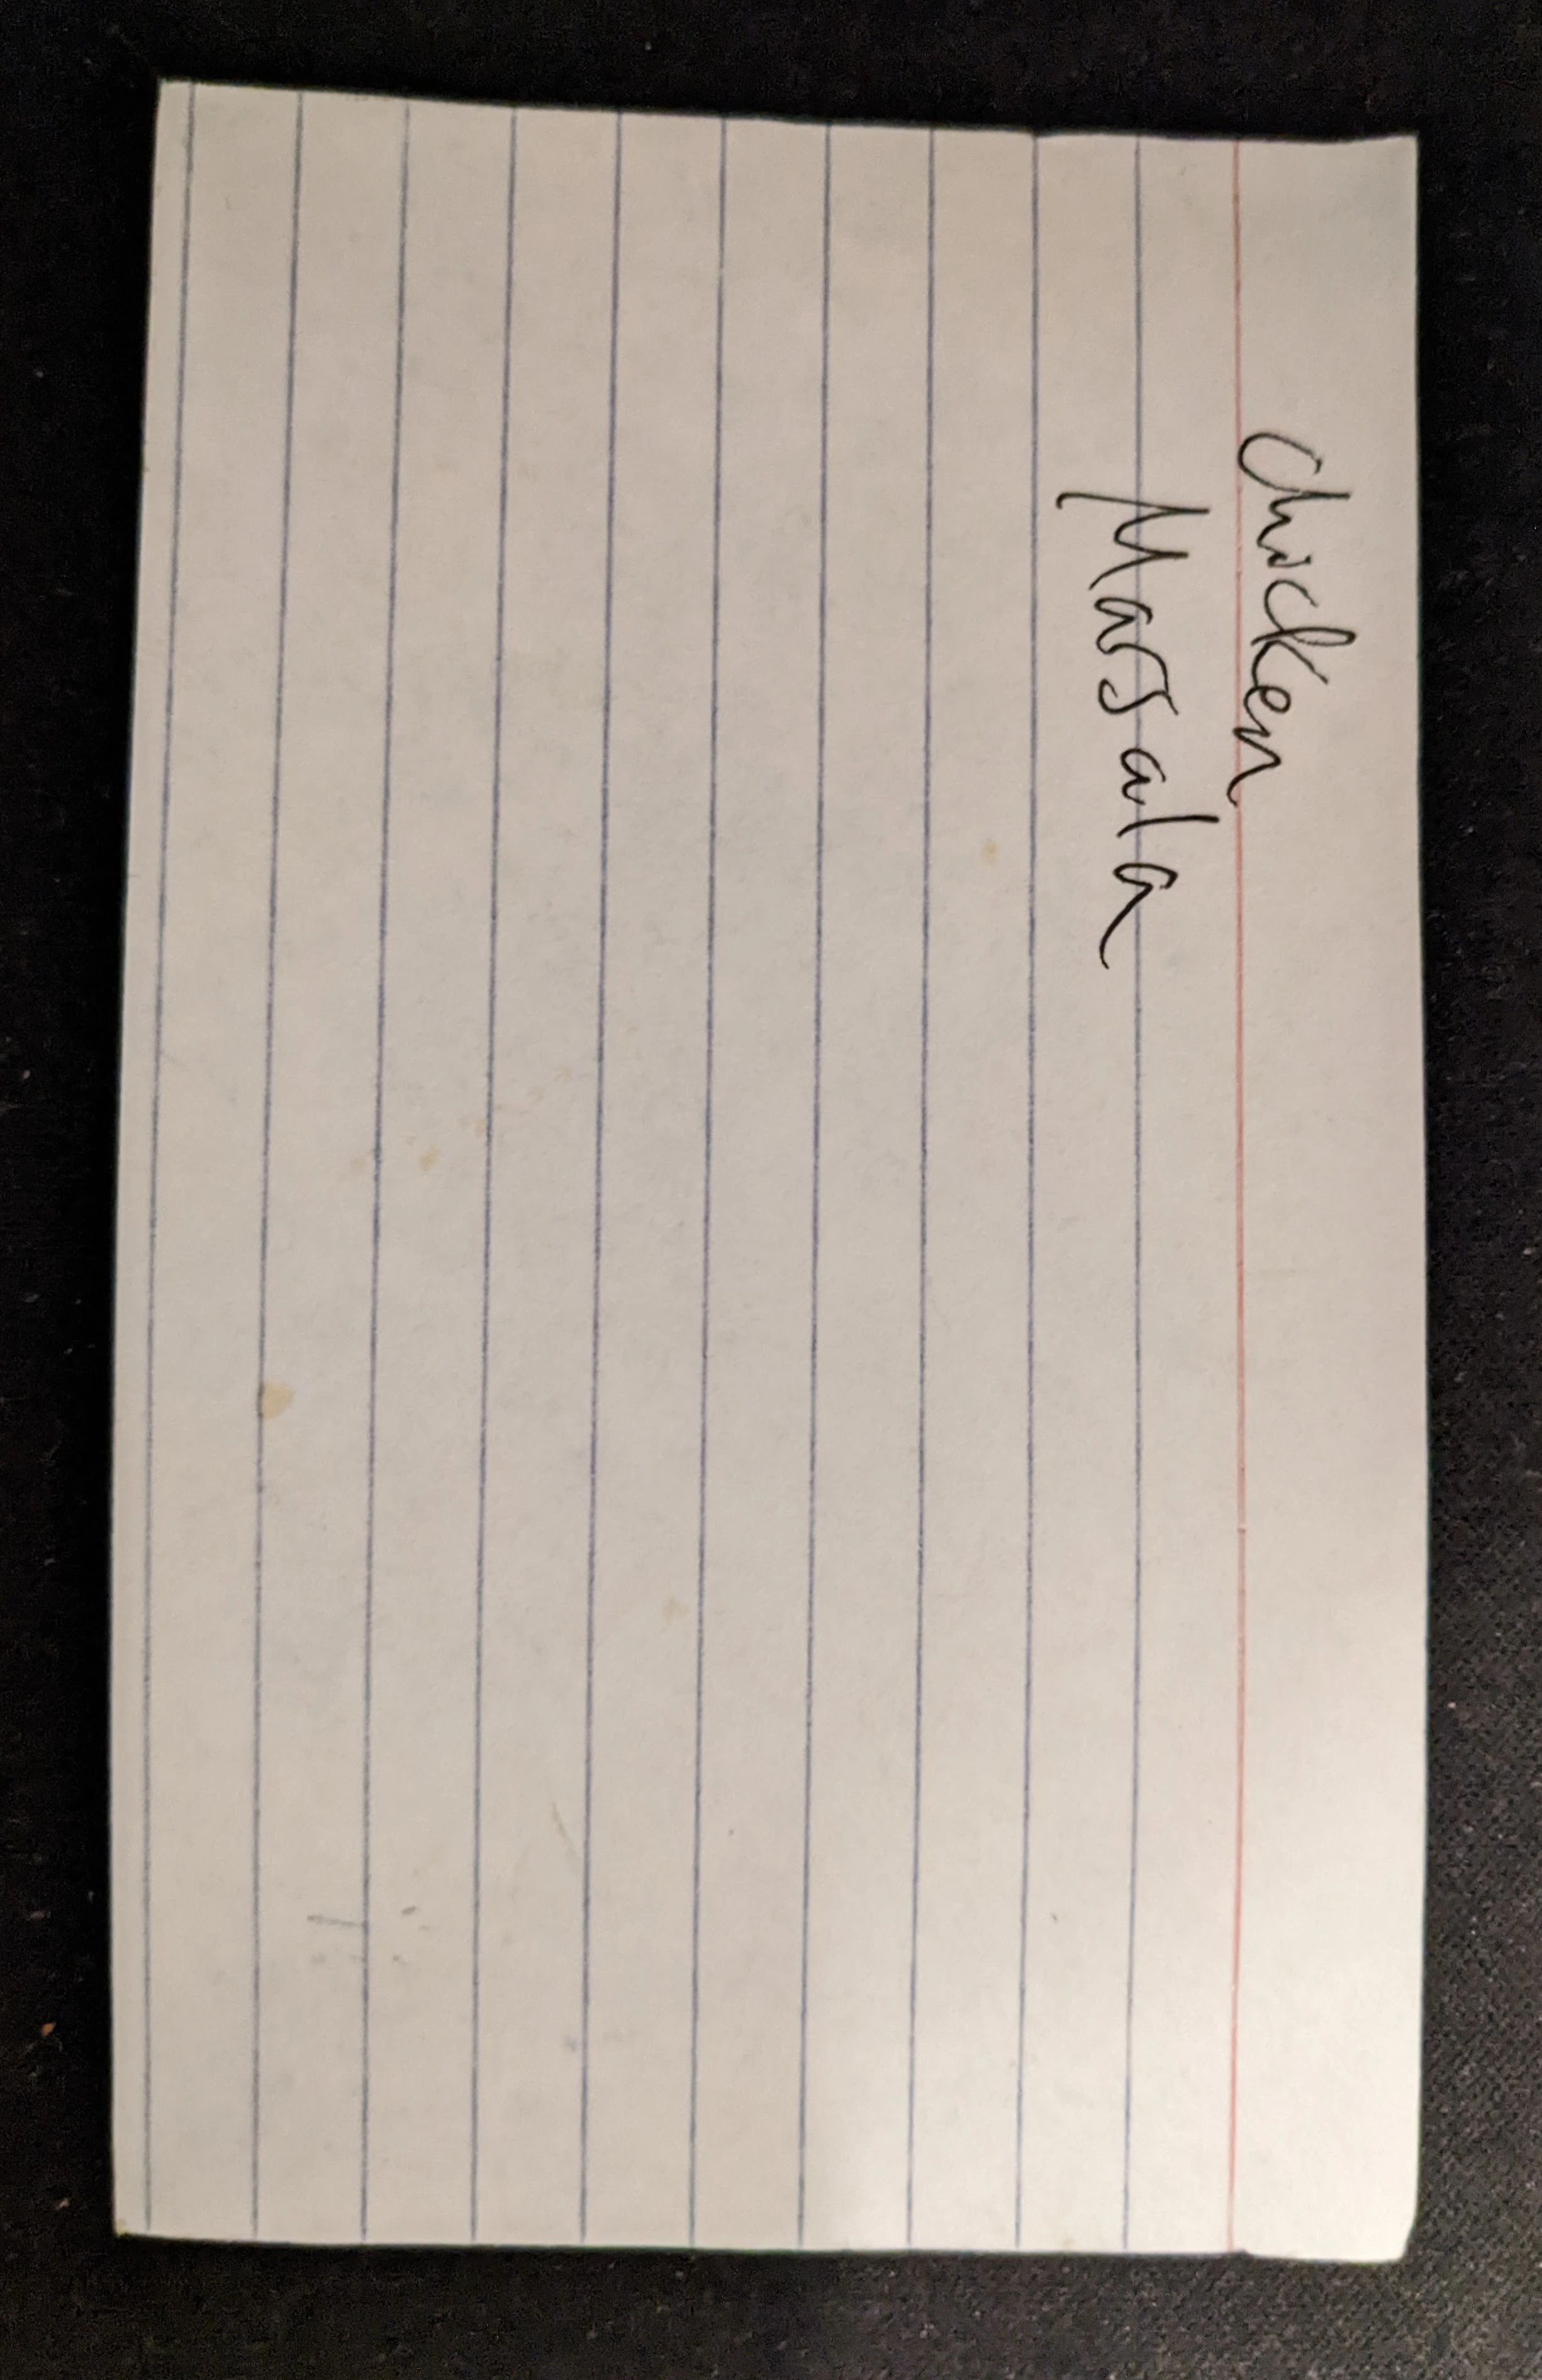 Chicken
Marsala